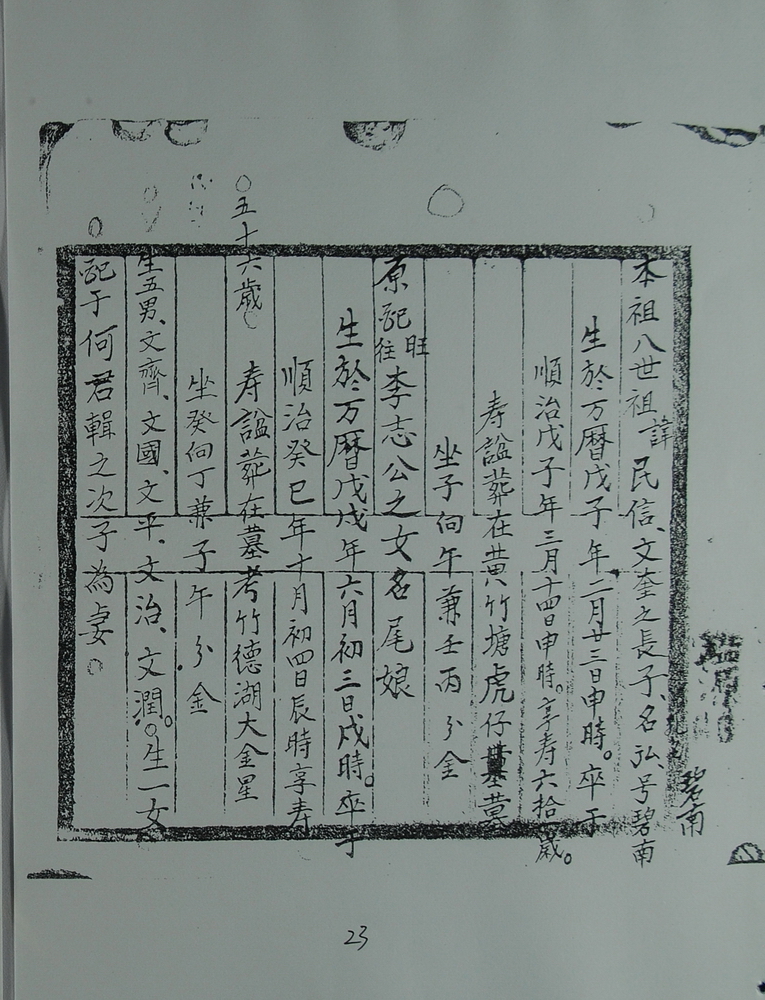 本祖八世祖諱民信、文奎之長子、名弘、号碧南
生於万曆戊子年二月廿三日申時。卒于
順治戊子年三月十四日申時。享寿六拾歲。
寿諡葬在黄竹塘虎仔墓
坐子向午兼壬丙分金
原配旺往李志公之女名尾娘
生於万曆戊戌年六月初三日戌時。卒于
順治癸巳年十月初四日辰時享寿
○五十六歲 寿諡葬在墓考竹德湖大金星
坐癸向丁兼子午分金
生五男、文齊、文國、文平、文治、文潤。○生一女
配于何君輯之次子為妻。
碧南
23